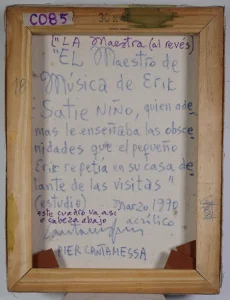 CO85
30
["LA Maestra (al revés)
"EL Maestro de
18
Música de Erik
Satie NIÑO, quien ade
mas le enseñaba las obsce
nidades que el pequeño
Erik repetía en su casa de
lante de las visitas"
(estudio) Marzo 1990
este cuadro va asi acrílico
o cabeza abajo
PIER CANTAMESSA